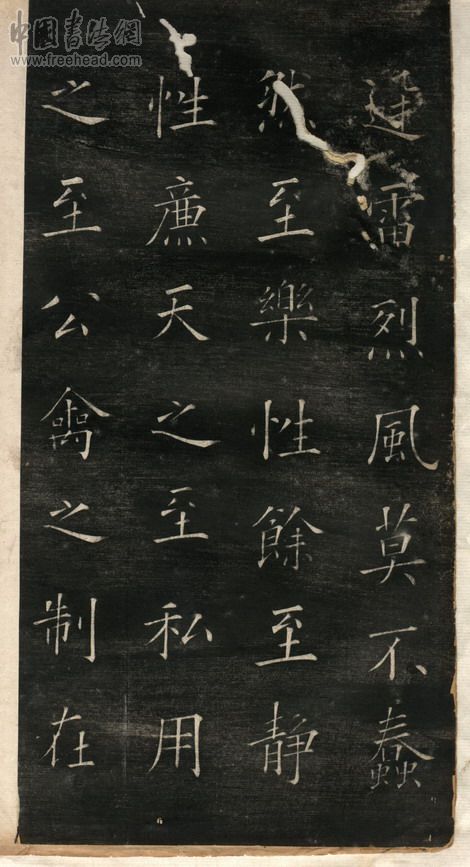 中國書法網
www.freehead.com
迅雷烈風莫不蠢
然至樂性餘至静
性廉天之至私用
之至公禽之制在